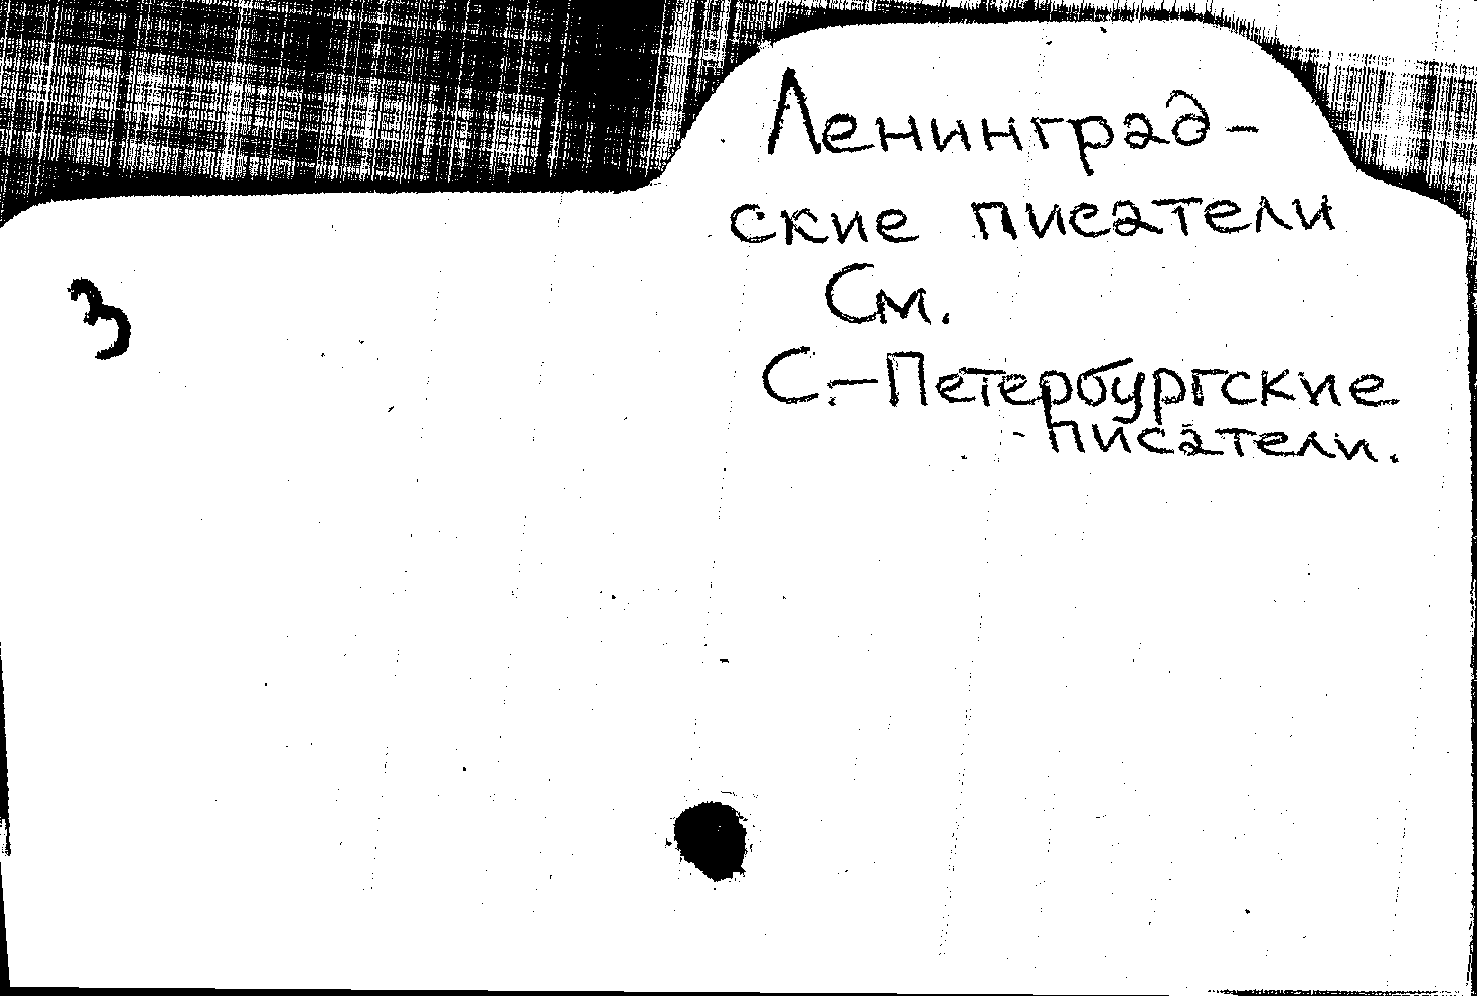 Ленинград-
ские писатели
См.
3
С.-Петербургские
писатели.